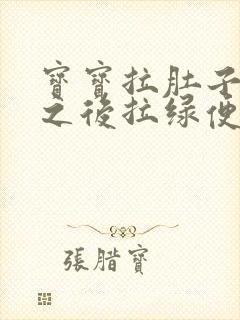 寶寶拉肚子
之後拉綠便
張腊寶